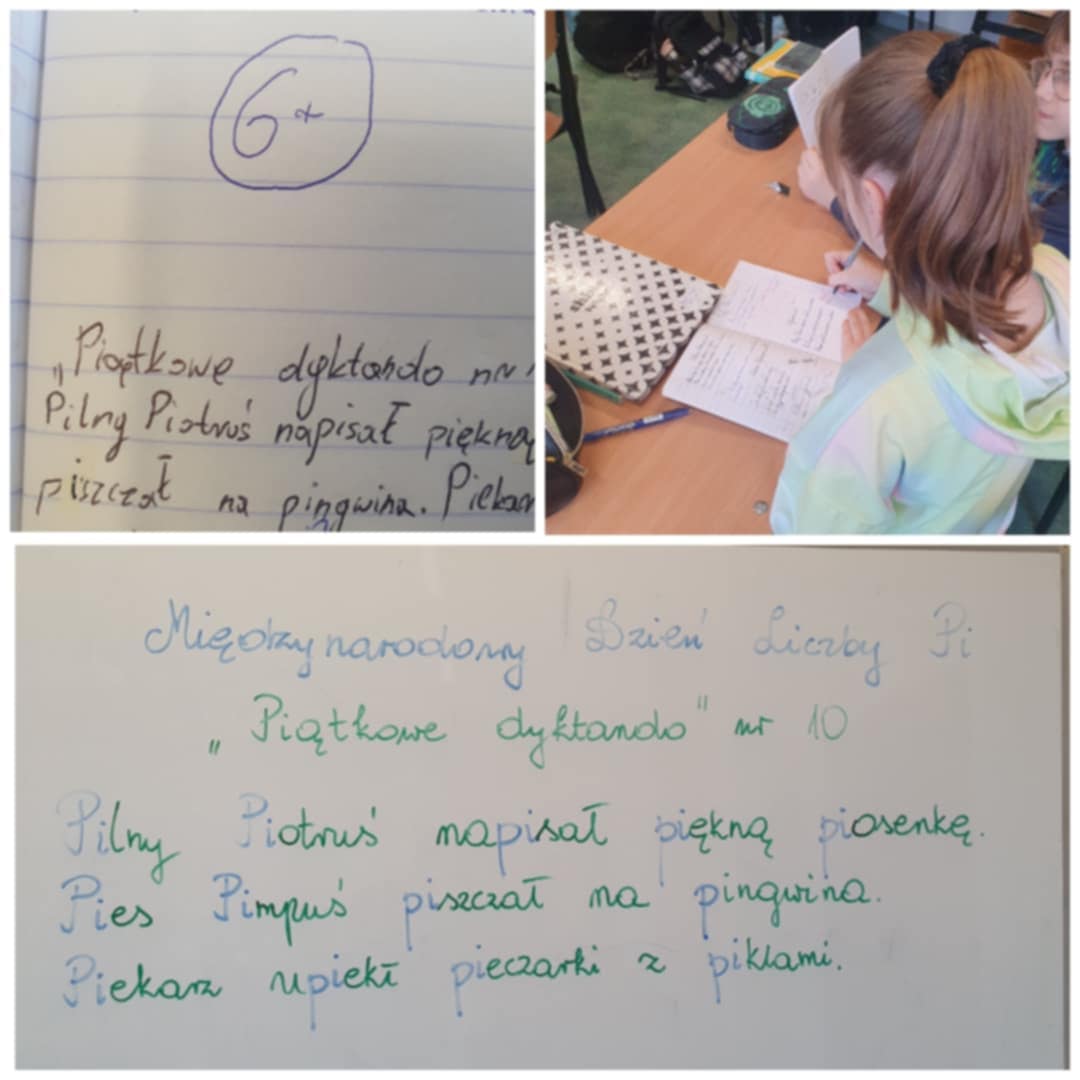 6+
"Piątkowe dyktando nr
Pilny Piotruś napisał piękną
piszczał na pingwina. Piekar
Międzynarodowy Dzień Liczby Pi
„Piątkowe dyktando" nr 10
Pilny Piotruś napisał piękną piosenkę.
Pies Pimpuś piszczał na pingwina.
Piekarz upiekł pieczarki z piklami.